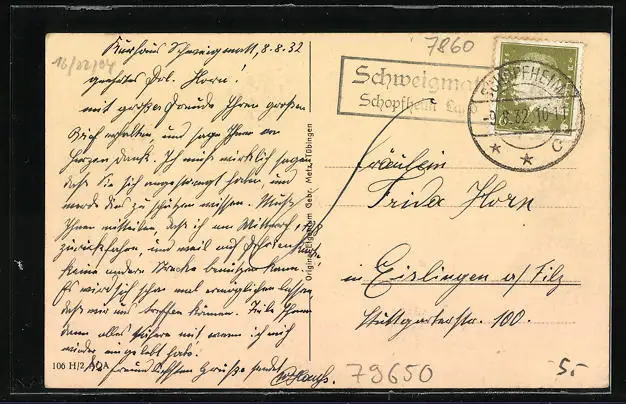 Kurhaus Schweigmatt, 8.8.32
geehrtes Frl. Horn!
mit großer Freude Ihren großen
Brief erhalten und sage Ihnen von
Herzen Dank. Ich muß wirklich sagen
daß Sie sich angestrengt haben, und
werde dies zu schätzen wissen. Muß
Ihnen mitteilen daß ich am Mittwoch
zurückfahre, und weil auf
keine andere Strecke benützen kann.
Es wird sich schon mal ermöglichen lassen,
daß wir uns treffen können. Teile Ihnen
dann alles nähere mit, wenn ich mich
wieder eingelebt habe.
freundlichsten Grüße sendet
106 H/2 AQA
Original-Eigentum Gebr. Metz, Tübingen
7860
Schweigmatt
Schopfheim
SCHOPFHEIM
-9.8.32.10-11
* * C
Fräulein
Frida Horn
in Eislingen a/Filz
Stuttgarterstr. 100.
79650
5,-